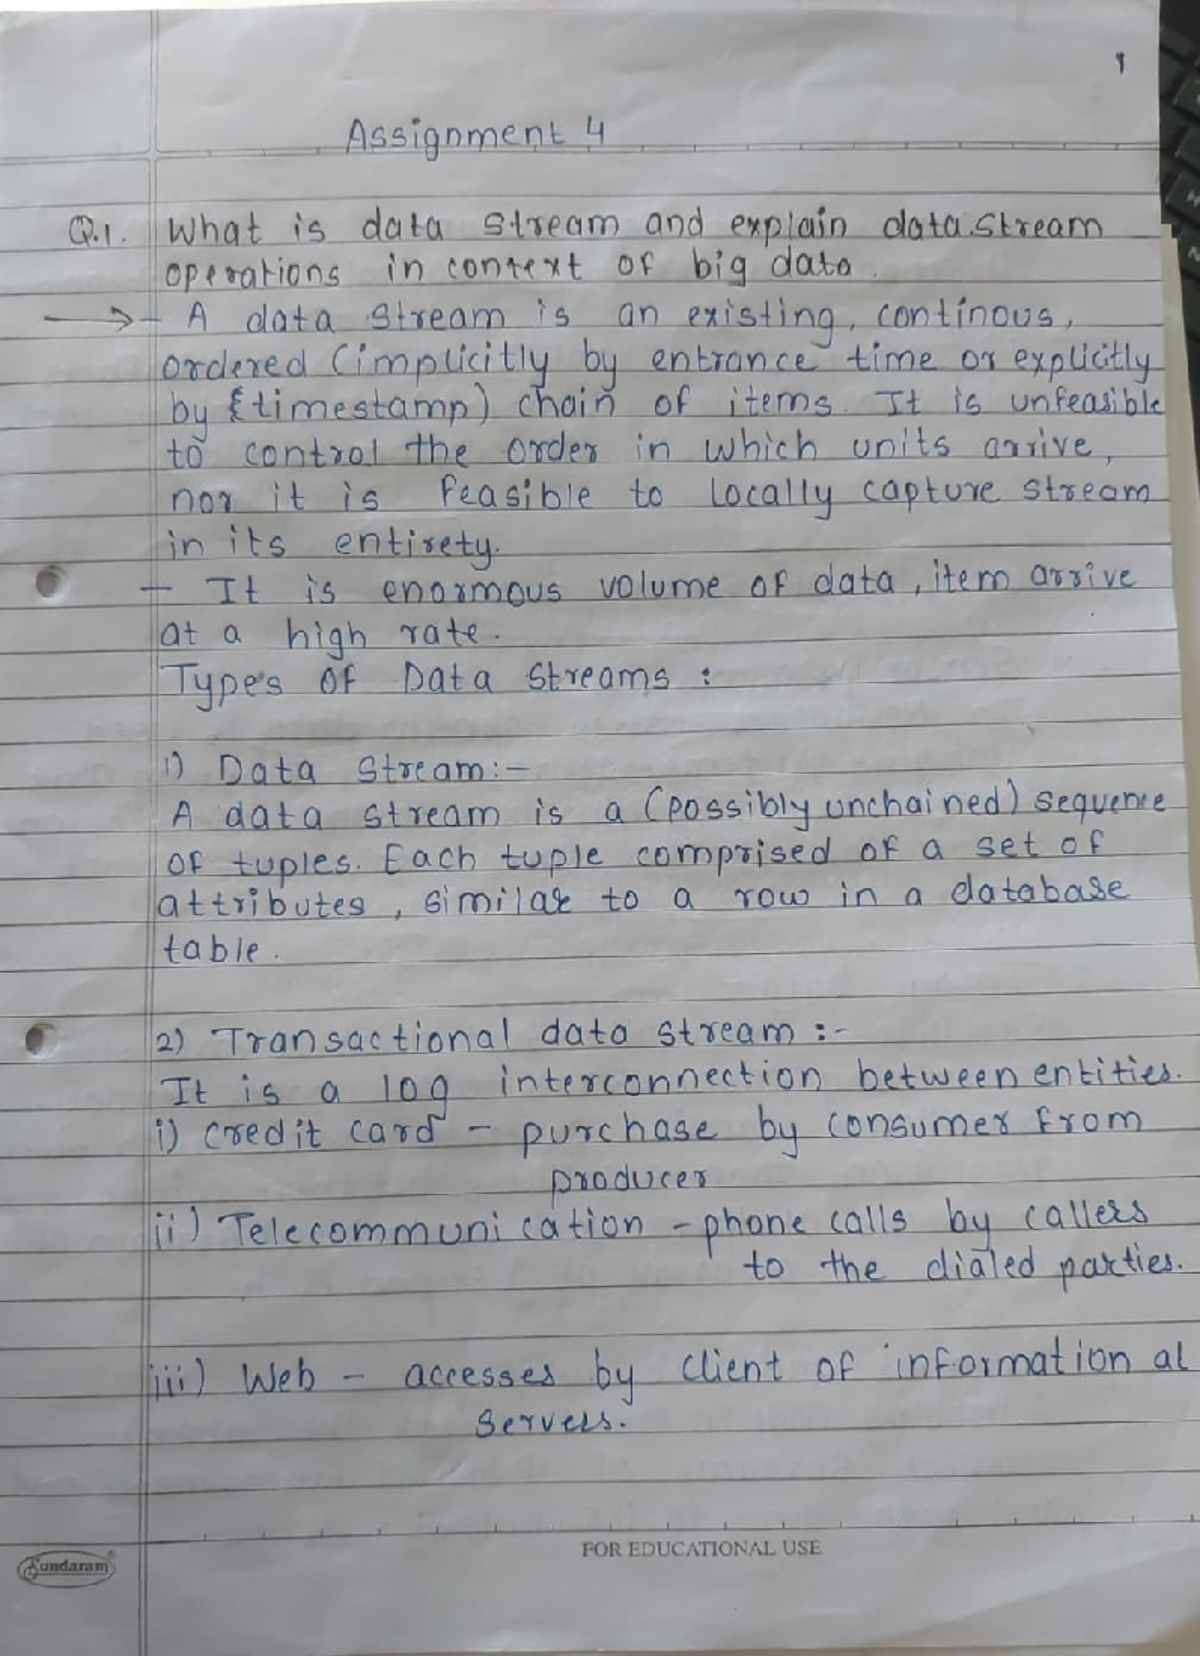 1
Assignment 4
Q.1. What is data stream and explain data stream
operations in context of big data.
→ - A data stream is an existing, continous,
ordered (implicitly by entrance time or explicitly
by timestamp) chain of items. It is unfeasible
to control the order in which units arrive,
nor it is feasible to locally capture stream
in its entirety.
- It is enormous volume of data, item arrive
at a high rate.
Types of Data Streams :
1) Data Stream:-
A data stream is a (possibly unchained) sequence
of tuples. Each tuple comprised of a set of
attributes, similar to a row in a database
table.
2) Transactional data stream :-
It is a log interconnection between entities.
i) credit card - purchase by consumer from
producer
ii) Telecommunication - phone calls by callers
to the dialed parties.
iii) Web - accesses by client of information at
servers.
FOR EDUCATIONAL USE
Sundaram